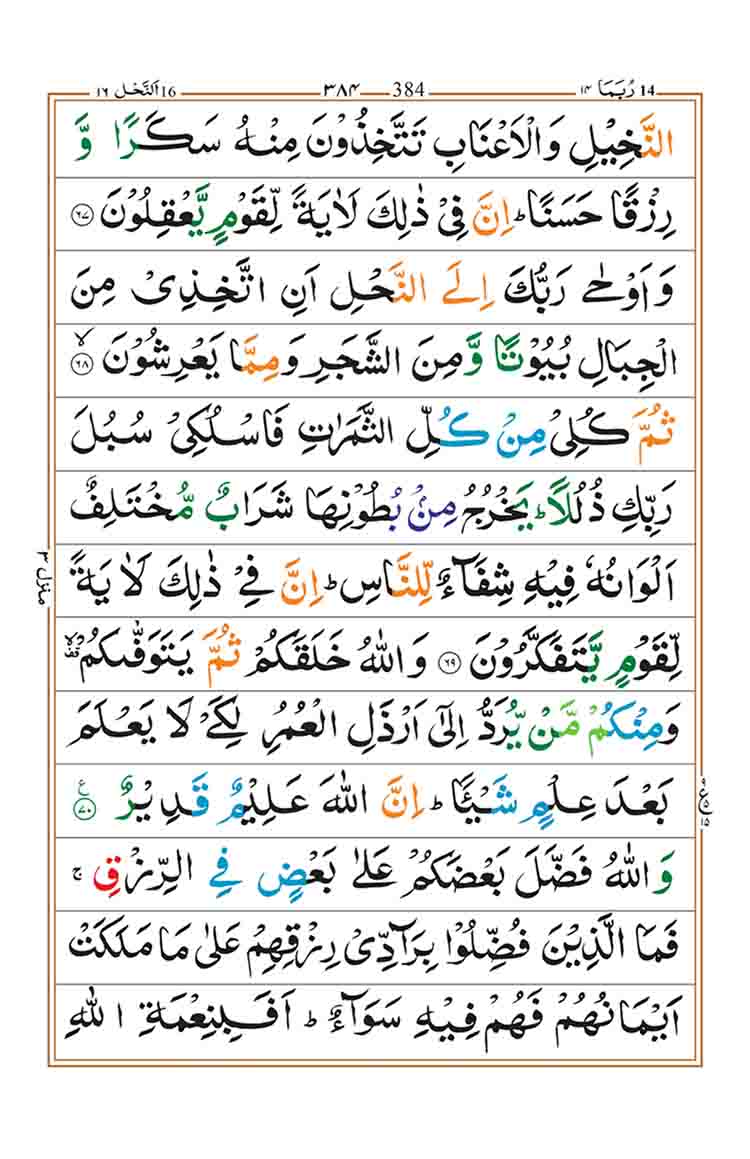 14 رُبَمَا ١٤
384 ٣٨٤
16 اَلنَّحْل ١٦
النَّخِيْلِ وَالْاَعْنَابِ تَتَّخِذُوْنَ مِنْهُ سَكَرًا وَّ
رِزْقًا حَسَنًا ؕ اِنَّ فِىْ ذٰلِكَ لَاٰيَةً لِّقَوْمٍ يَّعْقِلُوْنَ ۝٦٧
وَاَوْحٰى رَبُّكَ اِلَى النَّحْلِ اَنِ اتَّخِذِىْ مِنَ
الْجِبَالِ بُيُوْتًا وَّمِنَ الشَّجَرِ وَمِمَّا يَعْرِشُوْنَ ۝٦٨ ۙ
ثُمَّ كُلِىْ مِنْ كُلِّ الثَّمَرٰتِ فَاسْلُكِىْ سُبُلَ
رَبِّكِ ذُلُلًا ؕ يَخْرُجُ مِنْۢ بُطُوْنِهَا شَرَابٌ مُّخْتَلِفٌ
اَلْوَانُهٗ فِيْهِ شِفَآءٌ لِّلنَّاسِ ؕ اِنَّ فِىْ ذٰلِكَ لَاٰيَةً
لِّقَوْمٍ يَّتَفَكَّرُوْنَ ۝٦٩ وَاللّٰهُ خَلَقَكُمْ ثُمَّ يَتَوَفّٰٮكُمْ ۙ قف
وَمِنْكُمْ مَّنْ يُّرَدُّ اِلٰٓى اَرْذَلِ الْعُمُرِ لِكَىْ لَا يَعْلَمَ
بَعْدَ عِلْمٍ شَيْـًٔا ؕ اِنَّ اللّٰهَ عَلِيْمٌ قَدِيْرٌ ۝٧٠ ع
وَاللّٰهُ فَضَّلَ بَعْضَكُمْ عَلٰى بَعْضٍ فِى الرِّزْقِ ۚ
فَمَا الَّذِيْنَ فُضِّلُوْا بِرَآدِّىْ رِزْقِهِمْ عَلٰى مَا مَلَكَتْ
اَيْمَانُهُمْ فَهُمْ فِيْهِ سَوَآءٌ ؕ اَفَبِنِعْمَةِ اللّٰهِ
منزل ٣